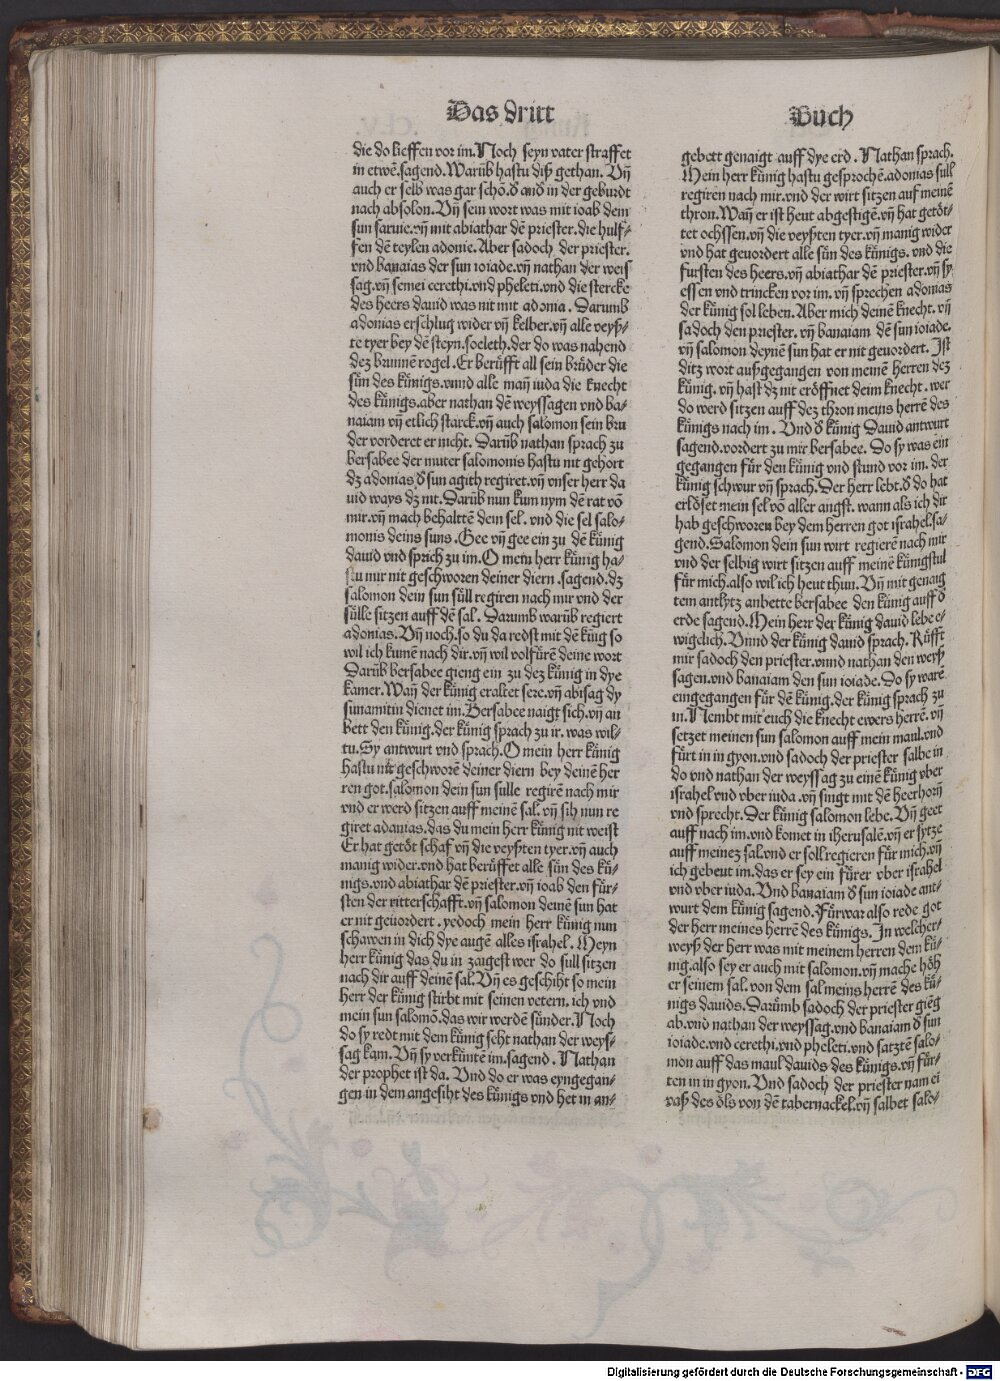 Das dritt
Buch
die do lieffen vor im. Noch seyn vater straffet
in etwē. sagend. Warūb hastu diß gethan. Vñ
auch er selb was gar schō. ď and̕ in der geburdt
nach absolon. Vñ sein wort was mit ioab dem
sun saruie. vñ mit abiathar dē priester. die hulf⸗
fen dē teylen adonie. Aber sadoch der priester.
vnd banaias der sun ioiade. vñ nathan der weis
sag. vñ semei cerethi. vnd pheleti. vnd die stercke
des heers dauid was nit mit adonia. Darumb
adonias erschlug wider vñ kelber. vñ alle veyß⸗
te tyer bey dē steyn. soeleth. der do was nahend
dez brunnē rogel. Er berůfft all sein brůder die
sůn des kůnigs. vnnd alle mañ iuda die knecht
des kůnigs. aber nathan dē weyssagen vnd ba⸗
naiam vñ etlich starck. vñ auch salomon sein bru
der vorderet er nicht. Darūb nathan sprach zu
bersabee der muter salomonis hastu nit gehort
dz adonias ď sun agith regiret. vñ vnser herr da
uid ways dz nit. Darūb nun kum nym dē rat vō
mir. vñ mach behalttē dein sel. vnd die sel salo⸗
monis deins suns. Gee vñ gee ein zu dē kůnig
dauid vnd sprich zu im. O mein herr kůnig ha⸗
stu mir nit geschworen deiner diern. sagend. dz
salomon dein sun sůll regiren nach mir vnd der
sůlle sitzen auff dē sal. Darumb warūb regiert
adonias. Vñ noch. so du da redst mit dē kůig so
wil ich kumē nach dir. vñ wil volfůrē deine wort
Darūb bersabee gieng ein zu dez kůnig in dye
kamer. Wañ der kůnig eraltet sere. vñ abisag dy
sunamitin dienet im. Bersabee naigt sich. vñ an
bett den kůnig. der kůnig sprach zu ir. was wil⸗
tu. Sy antwurt vnd sprach. O mein herr kůnig
hastu nit geschworē deiner diern bey deinē her
ren got. salomon dein sun sulle regirē nach mir
vnd er werd sitzen auff meinē sal. vñ sih nun re
giret adanias. das du mein herr kůnig nit weist
Er hat getöt schaf vñ die veyßten tyer. vñ auch
manig wider. vnd hat berůffet alle sůn des ků⸗
nigs. vnd abiathar dē priester. vñ ioab den fůr⸗
sten der ritterschafft. vñ salomon deinē sun hat
er nit geuordert. yedoch mein herr kůnig nun
schawen in dich dye augē alles israhel. Meyn
herr kůnig das du in zaigest wer do sull sitzen
nach dir auff deinē sal. Vñ es geschiht so mein
herr der kůnig stirbt mit seinen vetern. ich vnd
mein sun salomō. das wir werdē sůnder. Noch
do sy redt mit dem kůnig seht nathan der weys⸗
sag kam. Vñ sy verkůntē im. sagend. Nathan
der prophet ist da. Vnd do er was eyngegan⸗
gen in dem angesiht des kůnigs vnd het in an⸗
gebett genaigt auff dye erd. Nathan sprach.
Mein herr kůnig hastu gesprochē. adonias sull
regiren nach mir. vnd der wirt sitzen auf meinē
thron. Wañ er ist heut abgestigē. vñ hat getöt⸗
tet ochssen. vñ die veyßten tyer. vñ manig wider
vnd hat geuordert alle sůn des kůnigs. vnd die
fursten des heers. vñ abiathar dē priester. vñ sy
essen vnd trincken vor im. vñ sprechen adonias
der kůnig sol leben. Aber mich deinē knecht. vñ
sadoch den priester. vñ banaiam dē sun ioiade.
vñ salomon deynē sun hat er nit geuordert. Ist
ditz wort außgegangen von meinē herren dez
kůnig. vñ hast dz nit eröffnet deim knecht. wer
do werd sitzen auff dez thron meins herrē des
kůnigs nach im. Vnd ď kůnig Dauid antwurt
sagend. vordert zu mir bersabee. Do sy was ein
gegangen fůr den kůnig vnd stund vor im. der
kůnig schwur vñ sprach. Der herr lebt. ď do hat
erlöset mein sel vō aller angst. wann als ich dir
hab geschworen bey dem herren got israhel. sa⸗
gend. Salomon dein sun wirt regierē nach mir
vnd der selbig wirt sitzen auff meinē kůnigstul
fůr mich. also wil ich heut thun. Vñ mit genaig
tem antlytz anbette bersabee den kůnig auff ď
erde sagend. Mein herr der kůnig dauid lebe e⸗
wigclich. Vnnd der kůnig dauid sprach. Růfft
mir sadoch den priester. vnnd nathan den weyß
sagen. vnd banaiam den sun ioiade. Do sy warē
eingegangen fůr dē kůnig. der kůnig sprach zu
in. Nembt mit euch die knecht ewers herrē. vñ
setzet meinen sun salomon auff mein maul. vnd
fůrt in in gyon. vnd sadoch der priester salbe in
do vnd nathan der weyssag zu einē kůnig vber
israhel vnd vber iuda. vñ singt mit dē heerhorñ
vnd sprecht. Der kůnig salomon lebe. Vñ geet
auff nach im. vnd komet in iherusalē. vñ er sytze
auff meinez sal. vnd er soll regieren fůr mich. vñ
ich gebeut im. das er sey ein fůrer vber israhel
vnd vber iuda. Vnd banaiam ď sun ioiade ant⸗
wurt dem kůnig sagend. Fůrwar also rede got
der herr meines herrē des kůnigs. In welcher⸗
weyß der herr was mit meinem herren dem ků⸗
nig. also sey er auch mit salomon. vñ mache höh
er seinem sal. von dem sal meins herrē des ků⸗
nigs dauids. Darůmb sadoch der priester giēg
ab. vnd nathan der weyssag. vnd banaiam ď sun
ioiade. vnd cerethi. vnd pheleti. vnd satztē salo⸗
mon auff das maul dauids des kůnigs. vñ fůr⸗
ten in in gyon. Vnd sadoch der priester nam ei
vaß des öls von dē tabernackel. vñ salbet salo⸗
Digitalisierung gefördert durch die Deutsche Forschungsgemeinschaft - DFG